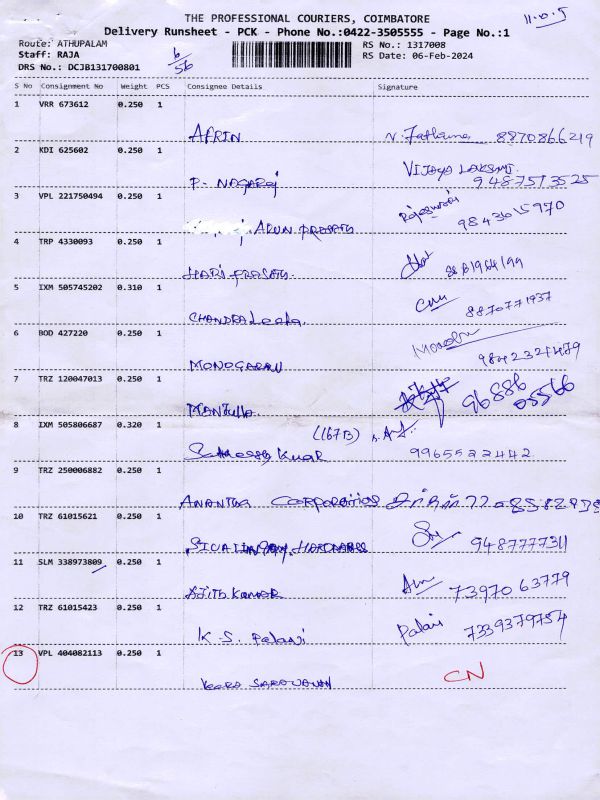 THE PROFESSIONAL COURIERS, COIMBATORE
Delivery Runsheet - PCK - Phone No.:0422-3505555 - Page No.:1
Route: ATHUPALAM
Staff: RAJA
DRS No.: DCJB131700801
6/56
RS No.: 1317008
RS Date: 06-Feb-2024
S No Consignment No Weight PCS Consignee Details Signature
1 VRR 673612 0.250 1
AFRIN 8870866219
2 KDI 625602 0.250 1
P. NAGARAJ VIJAYA LAKSMI. 9487513525
3 VPL 221750494 0.250 1
ARUN PRASATH Rajeswari 9843615970
4 TRP 4330093 0.250 1
HARI PRASATH
5 IXM 505745202 0.310 1
CHANDRA Leela. 8870771937
6 BOD 427220 0.250 1
MONOGARAN
7 TRZ 120047013 0.250 1
MANJULLA. 96886 05566
8 IXM 505806687 0.320 1
(167B)
Kumar 9965522442
9 TRZ 250006882 0.250 1
ANANTHA
10 TRZ 61015621 0.250 1
9487777311
11 SLM 338973809 0.250 1
AJITH KUMAR 73970 63779
12 TRZ 61015423 0.250 1
K. S. Palani Palani 7339379754
13 VPL 404082113 0.250 1
SARAVANAN CN